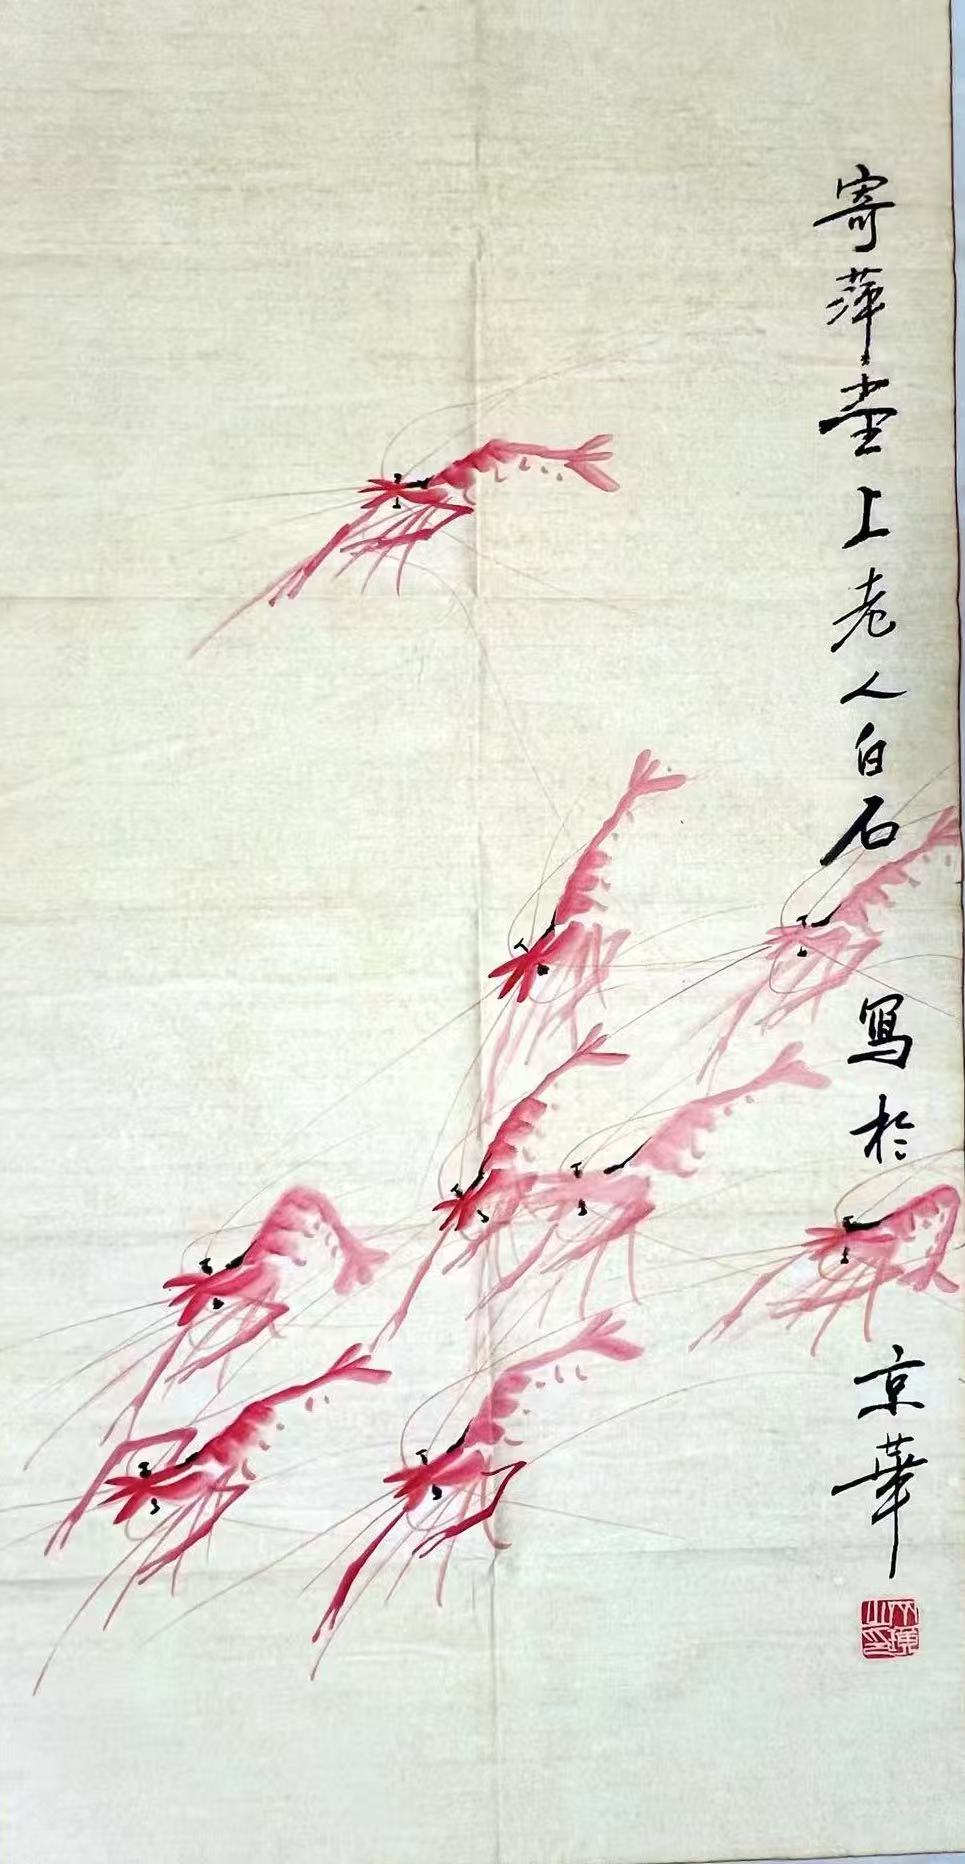 寄萍堂上老人白石 寫於 京華